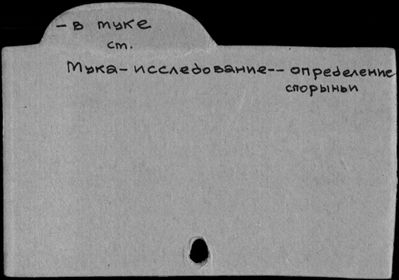 – в муке
ст.
Мука – исследование –– определение
спорыньи